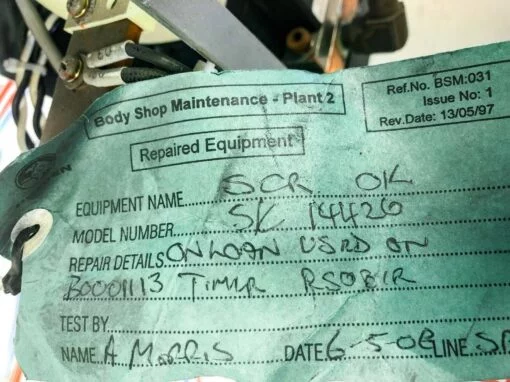 Body Shop Maintenance - Plant 2
Ref.No. BSM:031
Issue No: 1
Rev.Date: 13/05/97
Repaired Equipment
EQUIPMENT NAME SCR OK
MODEL NUMBER SK 14426
REPAIR DETAILS ON LOAN USED ON
B0001113 TIMER
TEST BY
NAME A MORRIS DATE 6-5-08 LINE